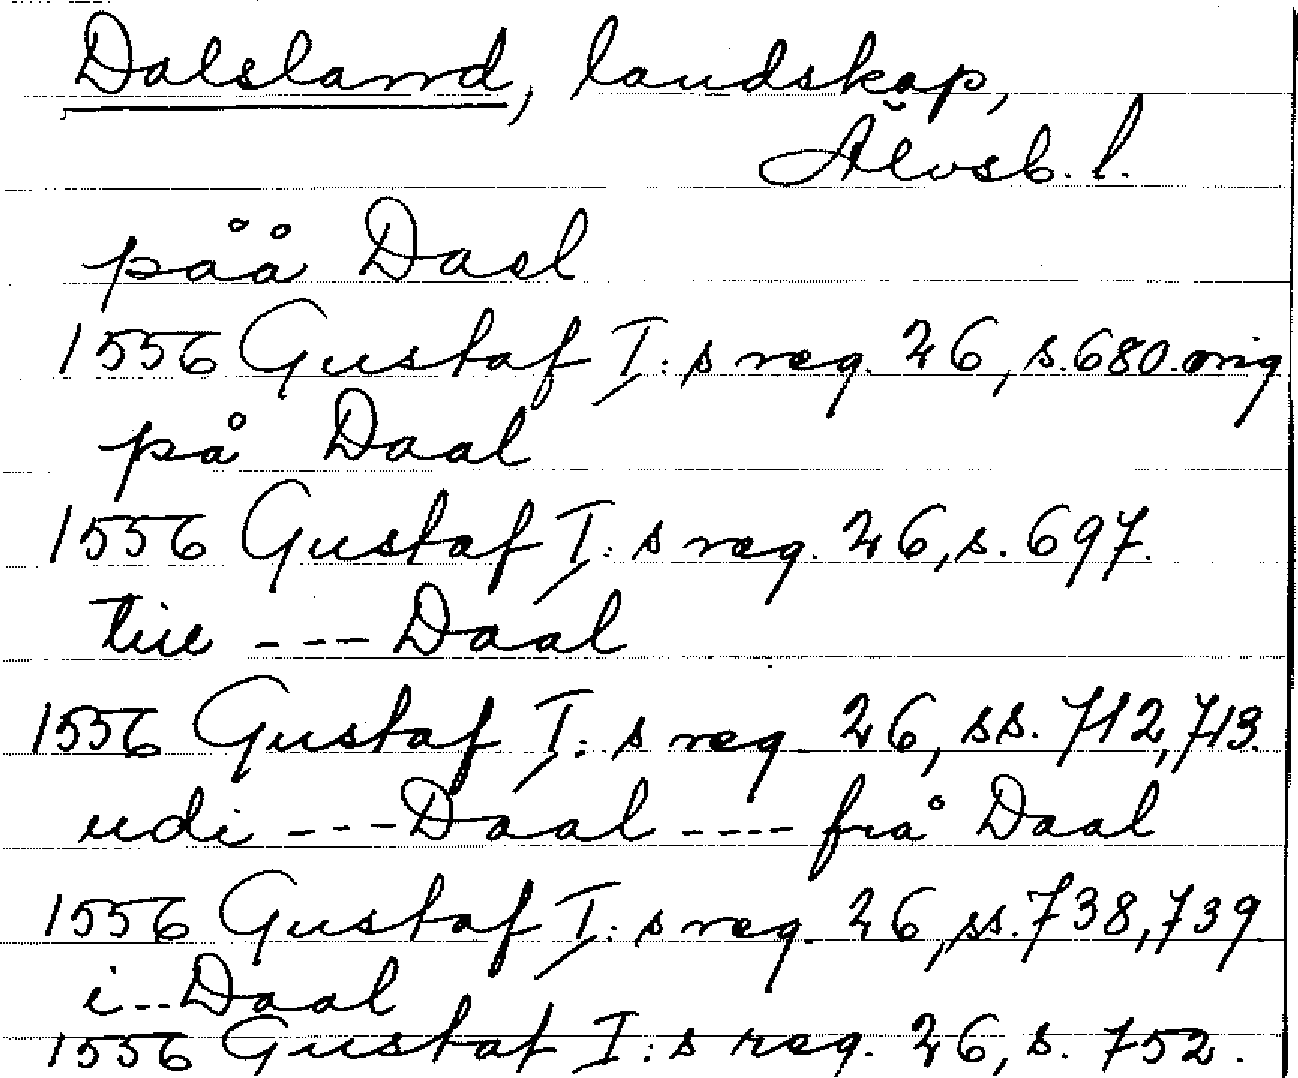 Dalsland, landskap,
Älvsb. l.
påå Dael
1556 Gustaf I:s reg. 26, s. 680. orig
på Daal
1556 Gustaf I:s reg. 26, s. 697.
tiie --- Daal
1556 Gustaf I:s reg. 26, ss. 712, 713.
udi --- Daal ---- frå Daal
1556 Gustaf I:s reg. 26, ss. 738, 739.
i -- Daal
1556 Gustaf I:s reg. 26, s. 752.